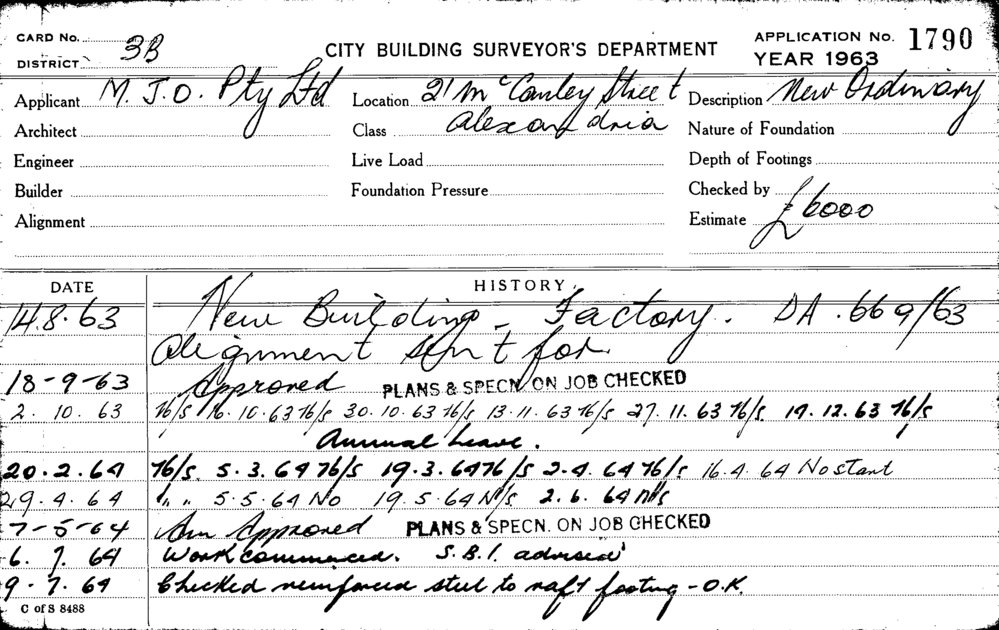 CARD No.
DISTRICT 3B
CITY BUILDING SURVEYOR'S DEPARTMENT
APPLICATION No. 1790
YEAR 1963
Applicant M.J.O. Pty Ltd
Location 21 McCauley Street
Description New Ordinary
Architect
Class Alexandria
Nature of Foundation
Engineer
Live Load
Depth of Footings
Builder
Foundation Pressure
Checked by
Alignment
Estimate £6000
DATE HISTORY
14.8.63 New Building - Factory. DA.669/63
Alignment sent for.
18-9-63 Approved PLANS & SPECN. ON JOB CHECKED
2.10.63 N/S 16.10.63 N/S 30.10.63 N/S 13.11.63 N/S 27.11.63 N/S 19.12.63 N/S
Annual Leave.
20.2.64 N/S. 5.3.64 N/S 19.3.64 N/S 2.4.64 N/S 16.4.64 No start
29.4.64 " " 5.5.64 No 19.5.64 N/S 2.6.64 N/S
7-5-64 Am Approved PLANS & SPECN. ON JOB CHECKED
6.7.64 Work commenced. S.B.I. advised
9-7.64 Checked reinforced steel to raft footing - O.K.
C of S 8488